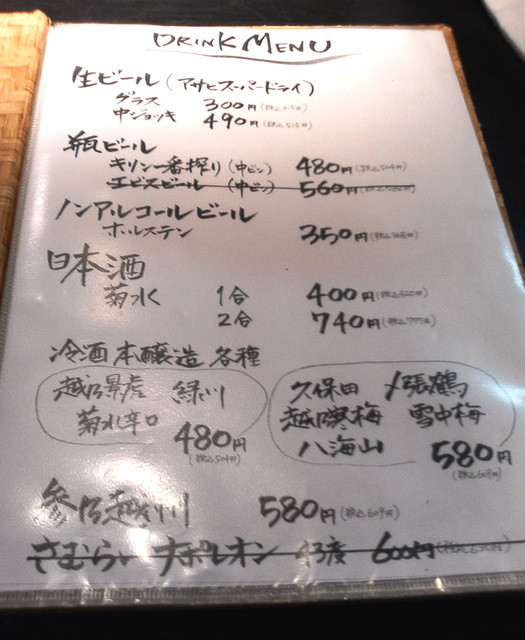 DRINK MENU
生ビール（アサヒスーパードライ）
グラス 300円（税込315円）
中ジョッキ 490円（税込515円）
瓶ビール
キリン一番搾り（中ビン） 480円（税込504円）
エビスビール（中ビン） 560円
ノンアルコールビール
ホルステン 350円（税込368円）
日本酒
菊水 1合 400円（税込420円）
2合 740円（税込777円）
冷酒 本醸造 各種
越乃景虎 緑川
菊水辛口
480円
（税込504円）
久保田 〆張鶴
越乃寒梅 雪中梅
八海山 580円
（税込609円）
580円（税込609円）
さむらい ナポレオン 43度 600円